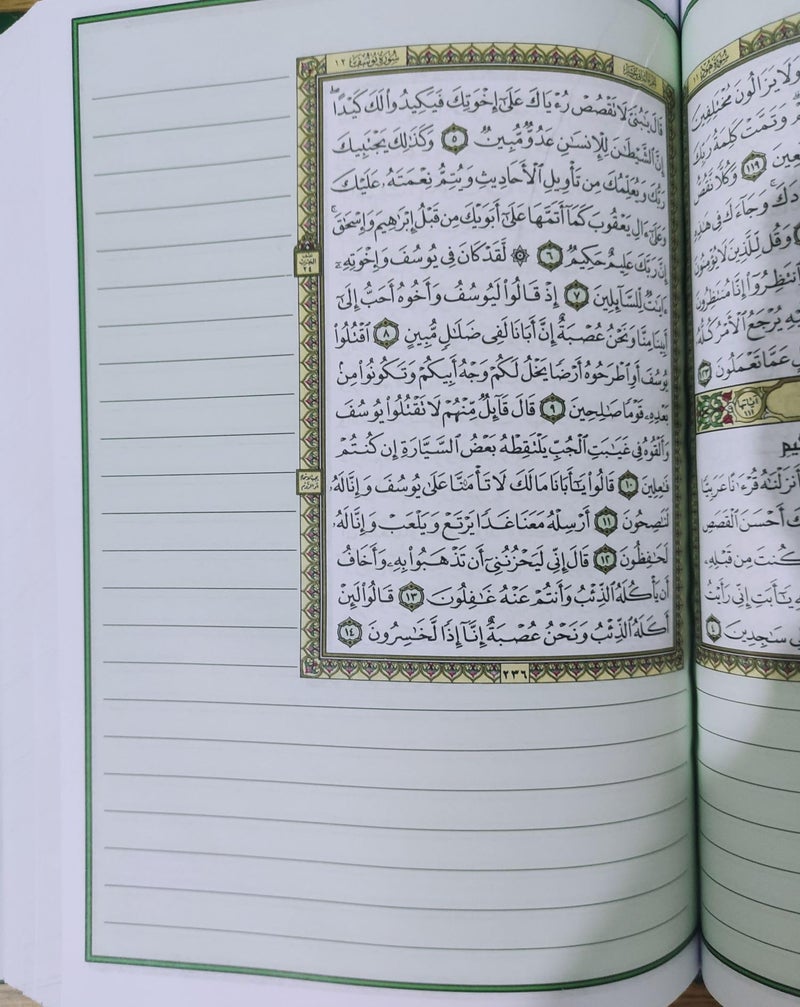 سُورَةُ يُوسُفَ ١٢
قَالَ يَٰبُنَىَّ لَا تَقْصُصْ رُءْيَاكَ عَلَىٰٓ إِخْوَتِكَ فَيَكِيدُوا۟ لَكَ كَيْدًا ۖ
إِنَّ ٱلشَّيْطَٰنَ لِلْإِنسَٰنِ عَدُوٌّ مُّبِينٌ ٥ وَكَذَٰلِكَ يَجْتَبِيكَ
رَبُّكَ وَيُعَلِّمُكَ مِن تَأْوِيلِ ٱلْأَحَادِيثِ وَيُتِمُّ نِعْمَتَهُۥ عَلَيْكَ
وَعَلَىٰٓ ءَالِ يَعْقُوبَ كَمَآ أَتَمَّهَا عَلَىٰٓ أَبَوَيْكَ مِن قَبْلُ إِبْرَٰهِيمَ وَإِسْحَٰقَ ۚ
إِنَّ رَبَّكَ عَلِيمٌ حَكِيمٌ ٦ ۞ لَّقَدْ كَانَ فِى يُوسُفَ وَإِخْوَتِهِۦٓ
ءَايَٰتٌ لِّلسَّآئِلِينَ ٧ إِذْ قَالُوا۟ لَيُوسُفُ وَأَخُوهُ أَحَبُّ إِلَىٰٓ
أَبِينَا مِنَّا وَنَحْنُ عُصْبَةٌ إِنَّ أَبَانَا لَفِى ضَلَٰلٍ مُّبِينٍ ٨ ٱقْتُلُوا۟
يُوسُفَ أَوِ ٱطْرَحُوهُ أَرْضًا يَخْلُ لَكُمْ وَجْهُ أَبِيكُمْ وَتَكُونُوا۟ مِنۢ
بَعْدِهِۦ قَوْمًا صَٰلِحِينَ ٩ قَالَ قَآئِلٌ مِّنْهُمْ لَا تَقْتُلُوا۟ يُوسُفَ
وَأَلْقُوهُ فِى غَيَٰبَتِ ٱلْجُبِّ يَلْتَقِطْهُ بَعْضُ ٱلسَّيَّارَةِ إِن كُنتُمْ
فَٰعِلِينَ ١٠ قَالُوا۟ يَٰٓأَبَانَا مَا لَكَ لَا تَأْمَ۫نَّا عَلَىٰ يُوسُفَ وَإِنَّا لَهُۥ
لَنَٰصِحُونَ ١١ أَرْسِلْهُ مَعَنَا غَدًا يَرْتَعْ وَيَلْعَبْ وَإِنَّا لَهُۥ
لَحَٰفِظُونَ ١٢ قَالَ إِنِّى لَيَحْزُنُنِىٓ أَن تَذْهَبُوا۟ بِهِۦ وَأَخَافُ
أَن يَأْكُلَهُ ٱلذِّئْبُ وَأَنتُمْ عَنْهُ غَٰفِلُونَ ١٣ قَالُوا۟ لَئِنْ
أَكَلَهُ ٱلذِّئْبُ وَنَحْنُ عُصْبَةٌ إِنَّآ إِذًا لَّخَٰسِرُونَ ١٤
نصف
الحزب
٢٤
٢٣٦
وَلَا يَزَالُونَ مُخْتَلِفِينَ
وَتَمَّتْ كَلِمَةُ رَبِّكَ
١١٩ وَكُلًّا نَّقُصُّ
وَجَآءَكَ فِى هَٰذِهِ
وَقُل لِّلَّذِينَ لَا يُؤْمِنُونَ
إِنَّا مُنتَظِرُونَ
يُرْجَعُ ٱلْأَمْرُ كُلُّهُۥ
عَمَّا تَعْمَلُونَ
قُرْءَٰنًا عَرَبِيًّا
أَحْسَنَ ٱلْقَصَصِ
كُنتَ مِن قَبْلِهِۦ
يَٰٓأَبَتِ إِنِّى رَأَيْتُ
سَٰجِدِينَ ٤